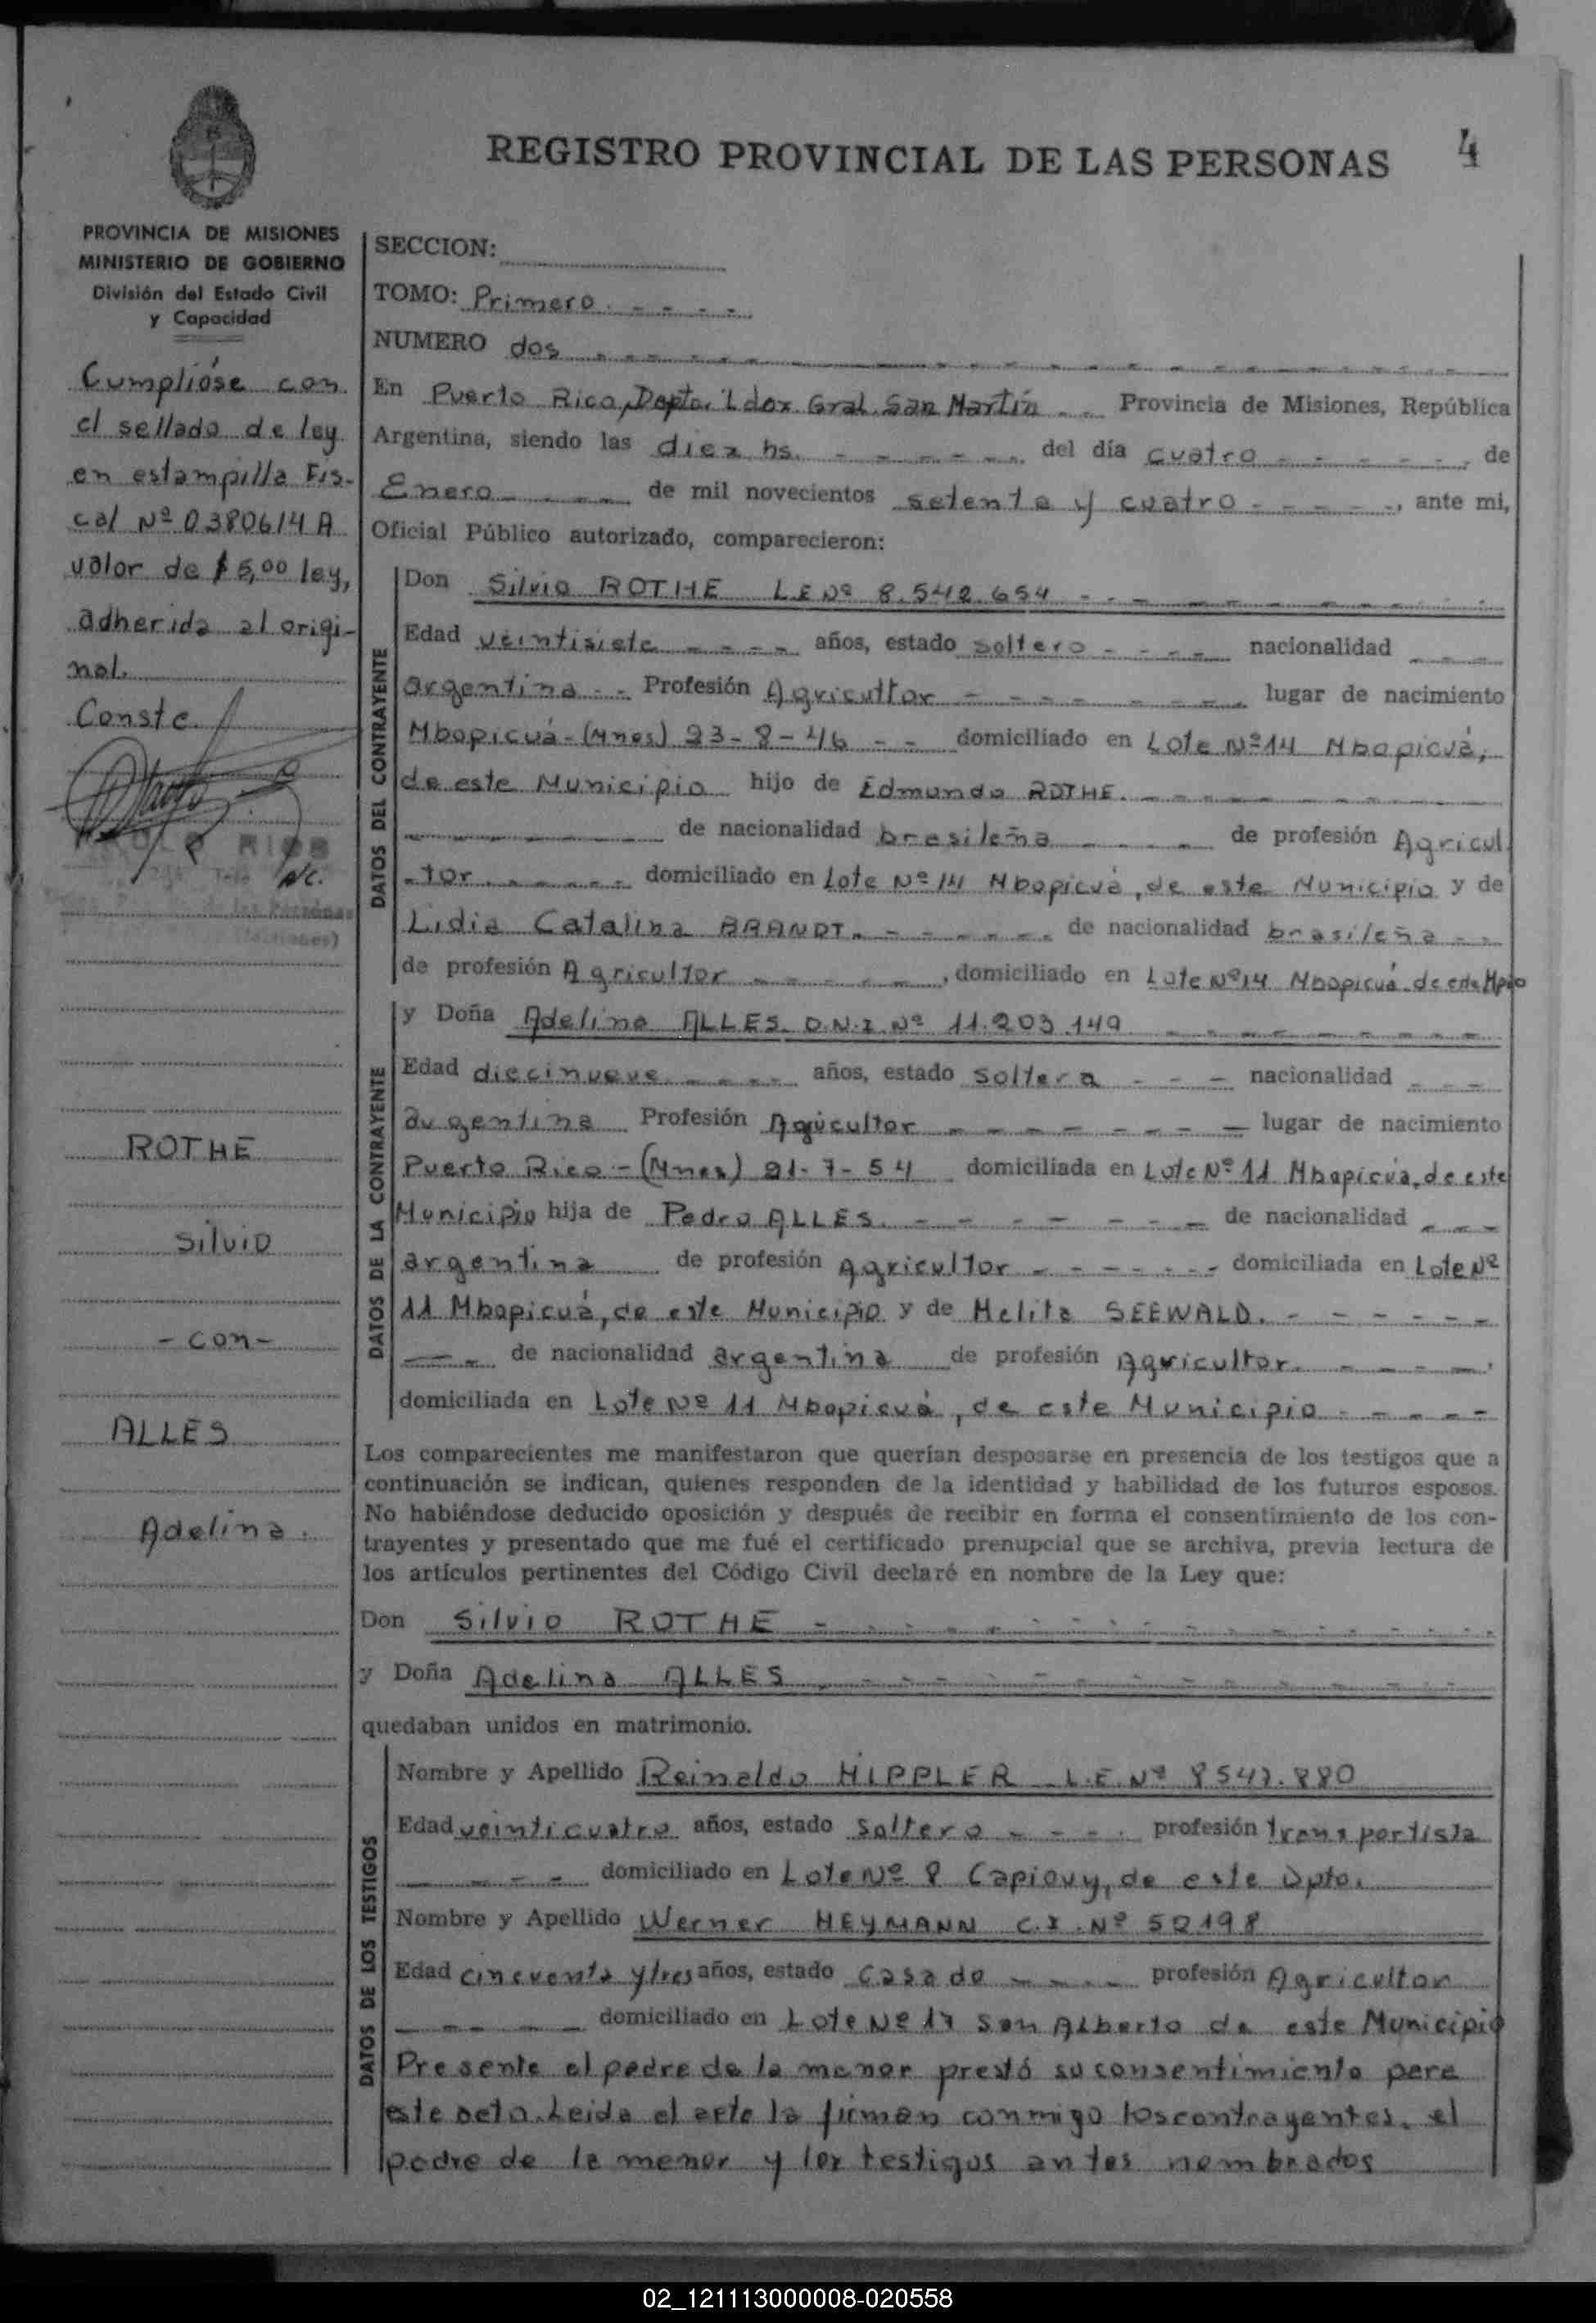 REGISTRO PROVINCIAL DE LAS PERSONAS
4
PROVINCIA DE MISIONES
MINISTERIO DE GOBIERNO
División del Estado Civil
y Capacidad
Cumplióse con
el sellado de ley
en estampilla Fis-
cal Nº 0380614 A
valor de $ 5,00 ley,
adherida al origi-
nal.
Conste.
RIOS
de las Personas
(Misiones)
ROTHE
Silvio
- con -
ALLES
Adelina.
SECCION:
TOMO: Primero. - - - -
NUMERO dos
En Puerto Rico, Depto. Ldor. Gral. San Martín - - Provincia de Misiones, República
Argentina, siendo las diez hs. - - - - - del día cuatro - - - - - de
Enero - - - - de mil novecientos setenta y cuatro - - - - -, ante mi,
Oficial Público autorizado, comparecieron:
DATOS DEL CONTRAYENTE
Don Silvio ROTHE L.E Nº 8.542.654 - - -
Edad veintisiete - - - - años, estado soltero - - - - nacionalidad - - -
argentina - - Profesión Agricultor - - - - - - - lugar de nacimiento
Mbopicuá - (Mnes) 23-8-46 - - domiciliado en Lote Nº 14 Mbopicuá,
de este Municipio hijo de Edmundo ROTHE. - - - -
de nacionalidad brasileña - - - - de profesión Agricul
-tor. - - - - - domiciliado en Lote Nº 14 Mbopicuá, de este Municipio y de
Lidia Catalina BRANDT. - - - - - - de nacionalidad brasileña - -
de profesión Agricultor - - - - - , domiciliado en Lote Nº 14 Mbopicuá de este Mpio
DATOS DE LA CONTRAYENTE
y Doña Adelina ALLES D.N.I. Nº 11.203.149
Edad diecinueve - - - - años, estado soltera - - - nacionalidad - - -
argentina Profesión Agricultor - - - - - - - - lugar de nacimiento
Puerto Rico - (Mnes) 21-7-54 domiciliada en Lote Nº 11 Mbopicuá, de este
Municipio hija de Pedro ALLES. - - - - - - - de nacionalidad - - -
argentina de profesión Agricultor - - - - - - - domiciliada en Lote Nº
11 Mbopicuá, de este Municipio y de Melita SEEWALD. - - - - - -
- - - de nacionalidad argentina de profesión Agricultor. - - - -
domiciliada en Lote Nº 11 Mbopicuá, de este Municipio - - - - -
Los comparecientes me manifestaron que querían desposarse en presencia de los testigos que a
continuación se indican, quienes responden de la identidad y habilidad de los futuros esposos.
No habiéndose deducido oposición y después de recibir en forma el consentimiento de los con-
trayentes y presentado que me fué el certificado prenupcial que se archiva, previa lectura de
los artículos pertinentes del Código Civil declaré en nombre de la Ley que:
Don Silvio ROTHE -
y Doña Adelina ALLES
quedaban unidos en matrimonio.
DATOS DE LOS TESTIGOS
Nombre y Apellido Reinaldo HIPPLER L.E. Nº
Edad veinticuatro años, estado soltero - - - - profesión transportista
- - - - domiciliado en Lote Nº 8 Capiovy, de este Dpto.
Nombre y Apellido Werner HEYMANN C.I. Nº 50198
Edad cincuenta y tres años, estado casado - - - - profesión Agricultor
- - - - domiciliado en Lote Nº 17 San Alberto de este Municipio
Presente el padre de la menor prestó su consentimiento para
este acto. Leida el acta la firman conmigo los contrayentes, el
padre de la menor y los testigos antes nombrados
02_121113000008-020558